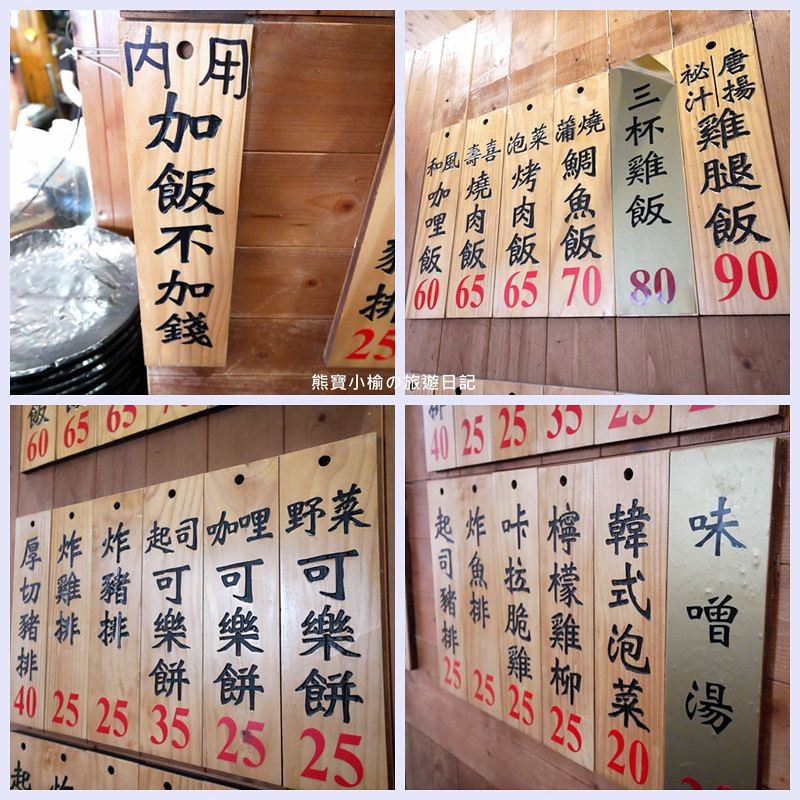 內用
加飯不加錢
豬排
25
唐揚
祕汁
雞腿飯
90
三杯雞飯
80
蒲燒
鯛魚飯
70
泡菜
烤肉飯
65
壽喜
燒肉飯
65
和風
咖哩飯
60
熊寶小榆の旅遊日記
飯
60
65
65
野菜
可樂餅
25
咖哩
可樂餅
25
起司
可樂餅
35
炸豬排
25
炸雞排
25
厚切豬排
40
起
炸
排
40
25
25
35
25
味噌湯
韓式泡菜
20
檸檬雞柳
25
咔拉脆雞
25
炸魚排
25
起司豬排
25